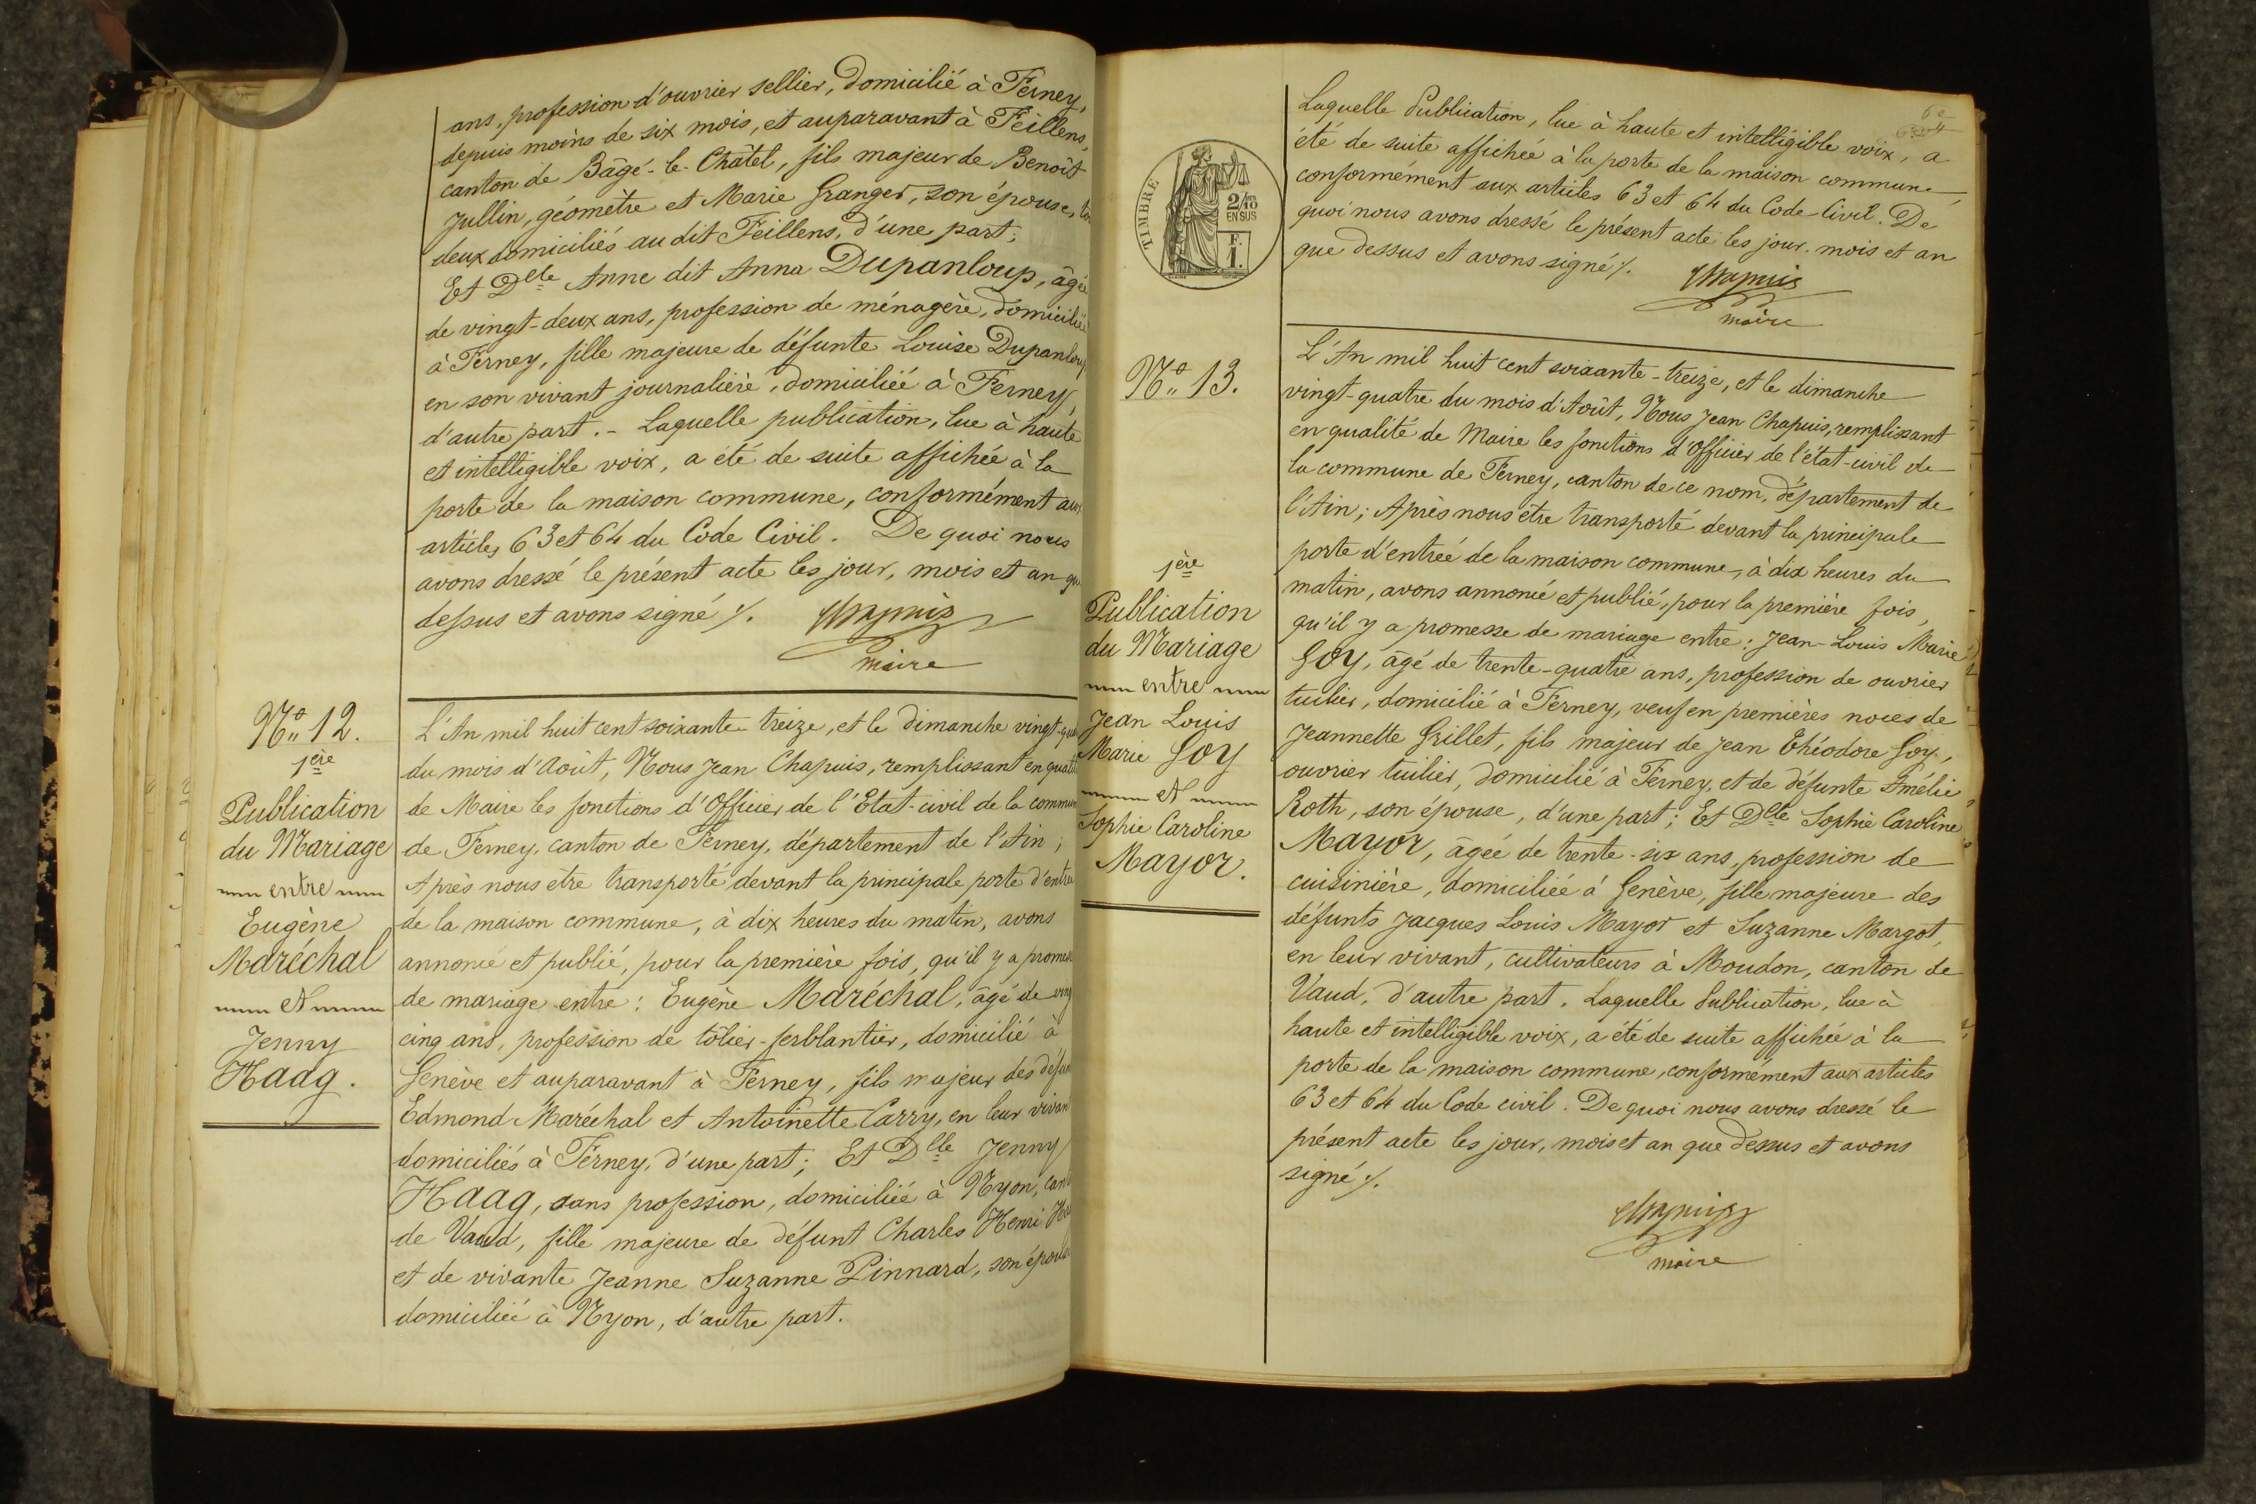 ans, profession d'ouvrier sellier, domicilié à Ferney,
depuis moins de six mois, et auparavant à Feillens,
canton de Bâgé-le-Châtel, fils majeur de Benoît
Jullin, géomètre et Marie Granger, son épouse,
deux domiciliés au dit Feillens, d'une part;
Et Dlle Anne dit Anna Dupanloup, âgée
de vingt-deux ans, profession de ménagère, domiciliée
à Ferney, fille majeure de défunte Louise Dupanloup
en son vivant journalière, domiciliée à Ferney,
d'autre part. - Laquelle publication, lue à haute
et intelligible voix, a été de suite affichée à la
porte de la maison commune, conformément aux
articles 63 et 64 du Code Civil. De quoi nous
avons dressé le présent acte les jour, mois et an que
dessus et avons signé ./.
Chapuis
maire
No 12.
1ère
Publication
du Mariage
entre
Eugène
Maréchal
et
Jenny
Haag.
L'An mil huit cent soixante-treize, et le dimanche vingt-qua
du mois d'Août, Nous Jean Chapuis, remplissant en qualité
de Maire les fonctions d'Officier de l'Etat-civil de la commune
de Ferney, canton de Ferney, département de l'Ain;
Après nous être transporté devant la principale porte d'entrée
de la maison commune, à dix heures du matin, avons
annoncé et publié, pour la première fois, qu'il y a promesse
de mariage entre: Eugène Maréchal, âgé de ving
cinq ans, profession de tôlier-ferblantier, domicilié à
Genève et auparavant à Ferney, fils majeur des défun
Edmond Maréchal et Antoinette Carry, en leur vivant
domiciliés à Ferney, d'une part; Et Dlle Jenny
Haag, sans profession, domiciliée à Nyon, cant
de Vaud, fille majeure de défunt Charles Henri Ha
et de vivante Jeanne Suzanne Pinnard, son épouse
domiciliée à Nyon, d'autre part.
TIMBRE
2/10
EN SUS
F.
1.
Laquelle Publication, lue à haute et intelligible voix, a
été de suite affichée à la porte de la maison commune
conformément aux articles 63 et 64 du Code Civil. De
quoi nous avons dressé le présent acte les jour, mois et an
que dessus et avons signé ./.
Chapuis
maire
No 13.
1ère
Publication
du Mariage
entre
Jean Louis
Marie Goy
et
Sophie Caroline
Mayor.
L'An mil huit cent soixante-treize, et le dimanche
vingt-quatre du mois d'Août, Nous Jean Chapuis, remplissant
en qualité de Maire les fonctions d'Officier de l'état-civil de
la commune de Ferney, canton de ce nom, département de
l'Ain; Après nous être transporté devant la principale
porte d'entrée de la maison commune, à dix heures du
matin, avons annoncé et publié, pour la première fois,
qu'il y a promesse de mariage entre: Jean-Louis Marie
Goy, âgé de trente-quatre ans, profession de ouvrier
tuilier, domicilié à Ferney, veuf en premières noces de
Jeannette Grillet, fils majeur de Jean Théodore Goy,
ouvrier tuilier, domicilié à Ferney, et de défunte Amélie
Roth, son épouse, d'une part; Et Dlle Sophie Caroline
Mayor, âgée de trente-six ans, profession de
cuisinière, domiciliée à Genève, fille majeure des
défunts Jacques Louis Mayor et Suzanne Margot,
en leur vivant, cultivateurs à Moudon, canton de
Vaud, d'autre part. Laquelle Publication, lue à
haute et intelligible voix, a été de suite affichée à la
porte de la maison commune, conformément aux articles
63 et 64 du Code civil. De quoi nous avons dressé le
présent acte les jour, mois et an que dessus et avons
signé ./.
Chapuis
maire